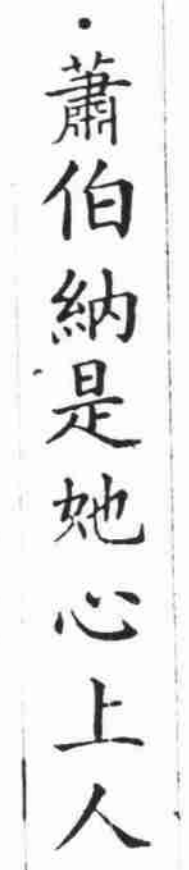 ·蕭伯納是她心上人